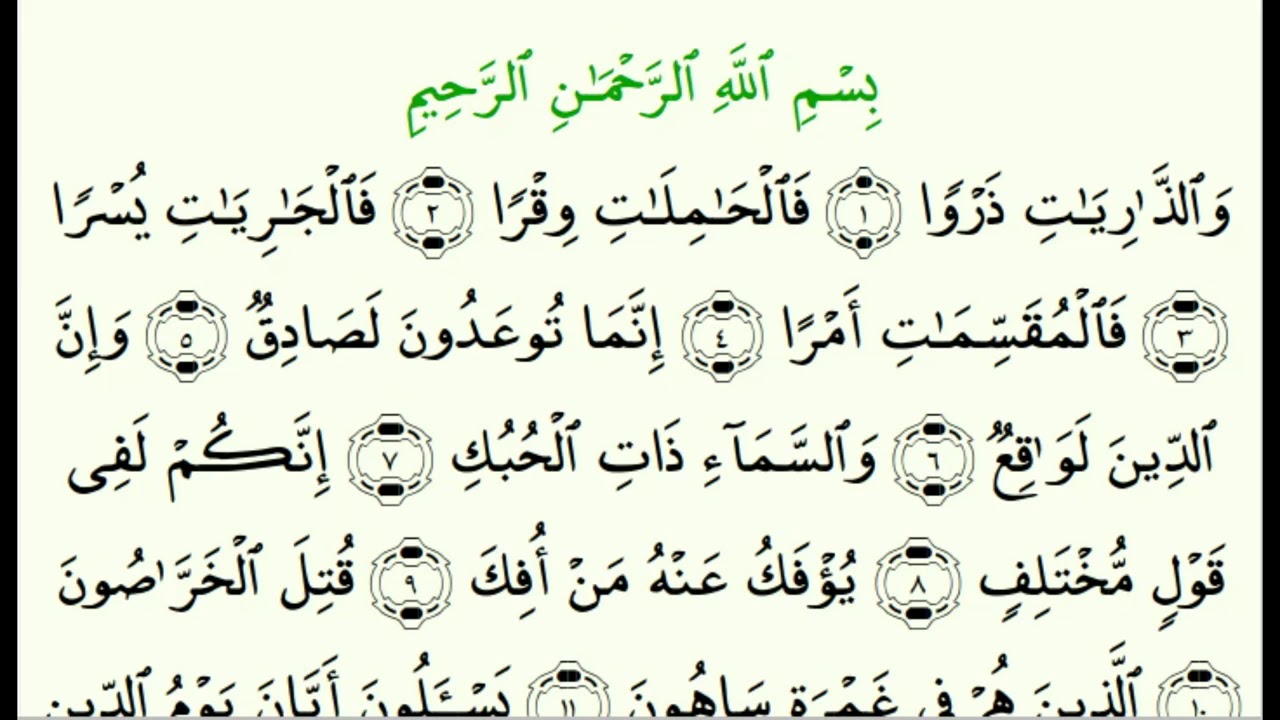 بِسْمِ ٱللَّهِ ٱلرَّحْمَـٰنِ ٱلرَّحِيمِ
وَٱلذَّٰرِيَـٰتِ ذَرْوًا ١ فَٱلْحَـٰمِلَـٰتِ وِقْرًا ٢ فَٱلْجَـٰرِيَـٰتِ يُسْرًا
٣ فَٱلْمُقَسِّمَـٰتِ أَمْرًا ٤ إِنَّمَا تُوعَدُونَ لَصَادِقٌ ٥ وَإِنَّ
ٱلدِّينَ لَوَٰقِعٌ ٦ وَٱلسَّمَآءِ ذَاتِ ٱلْحُبُكِ ٧ إِنَّكُمْ لَفِى
قَوْلٍ مُّخْتَلِفٍ ٨ يُؤْفَكُ عَنْهُ مَنْ أُفِكَ ٩ قُتِلَ ٱلْخَرَّٰصُونَ
١٠ ٱلَّذِينَ هُمْ فِى غَمْرَةٍ سَاهُونَ ١١ يَسْـَٔلُونَ أَيَّانَ يَوْمُ ٱلدِّينِ